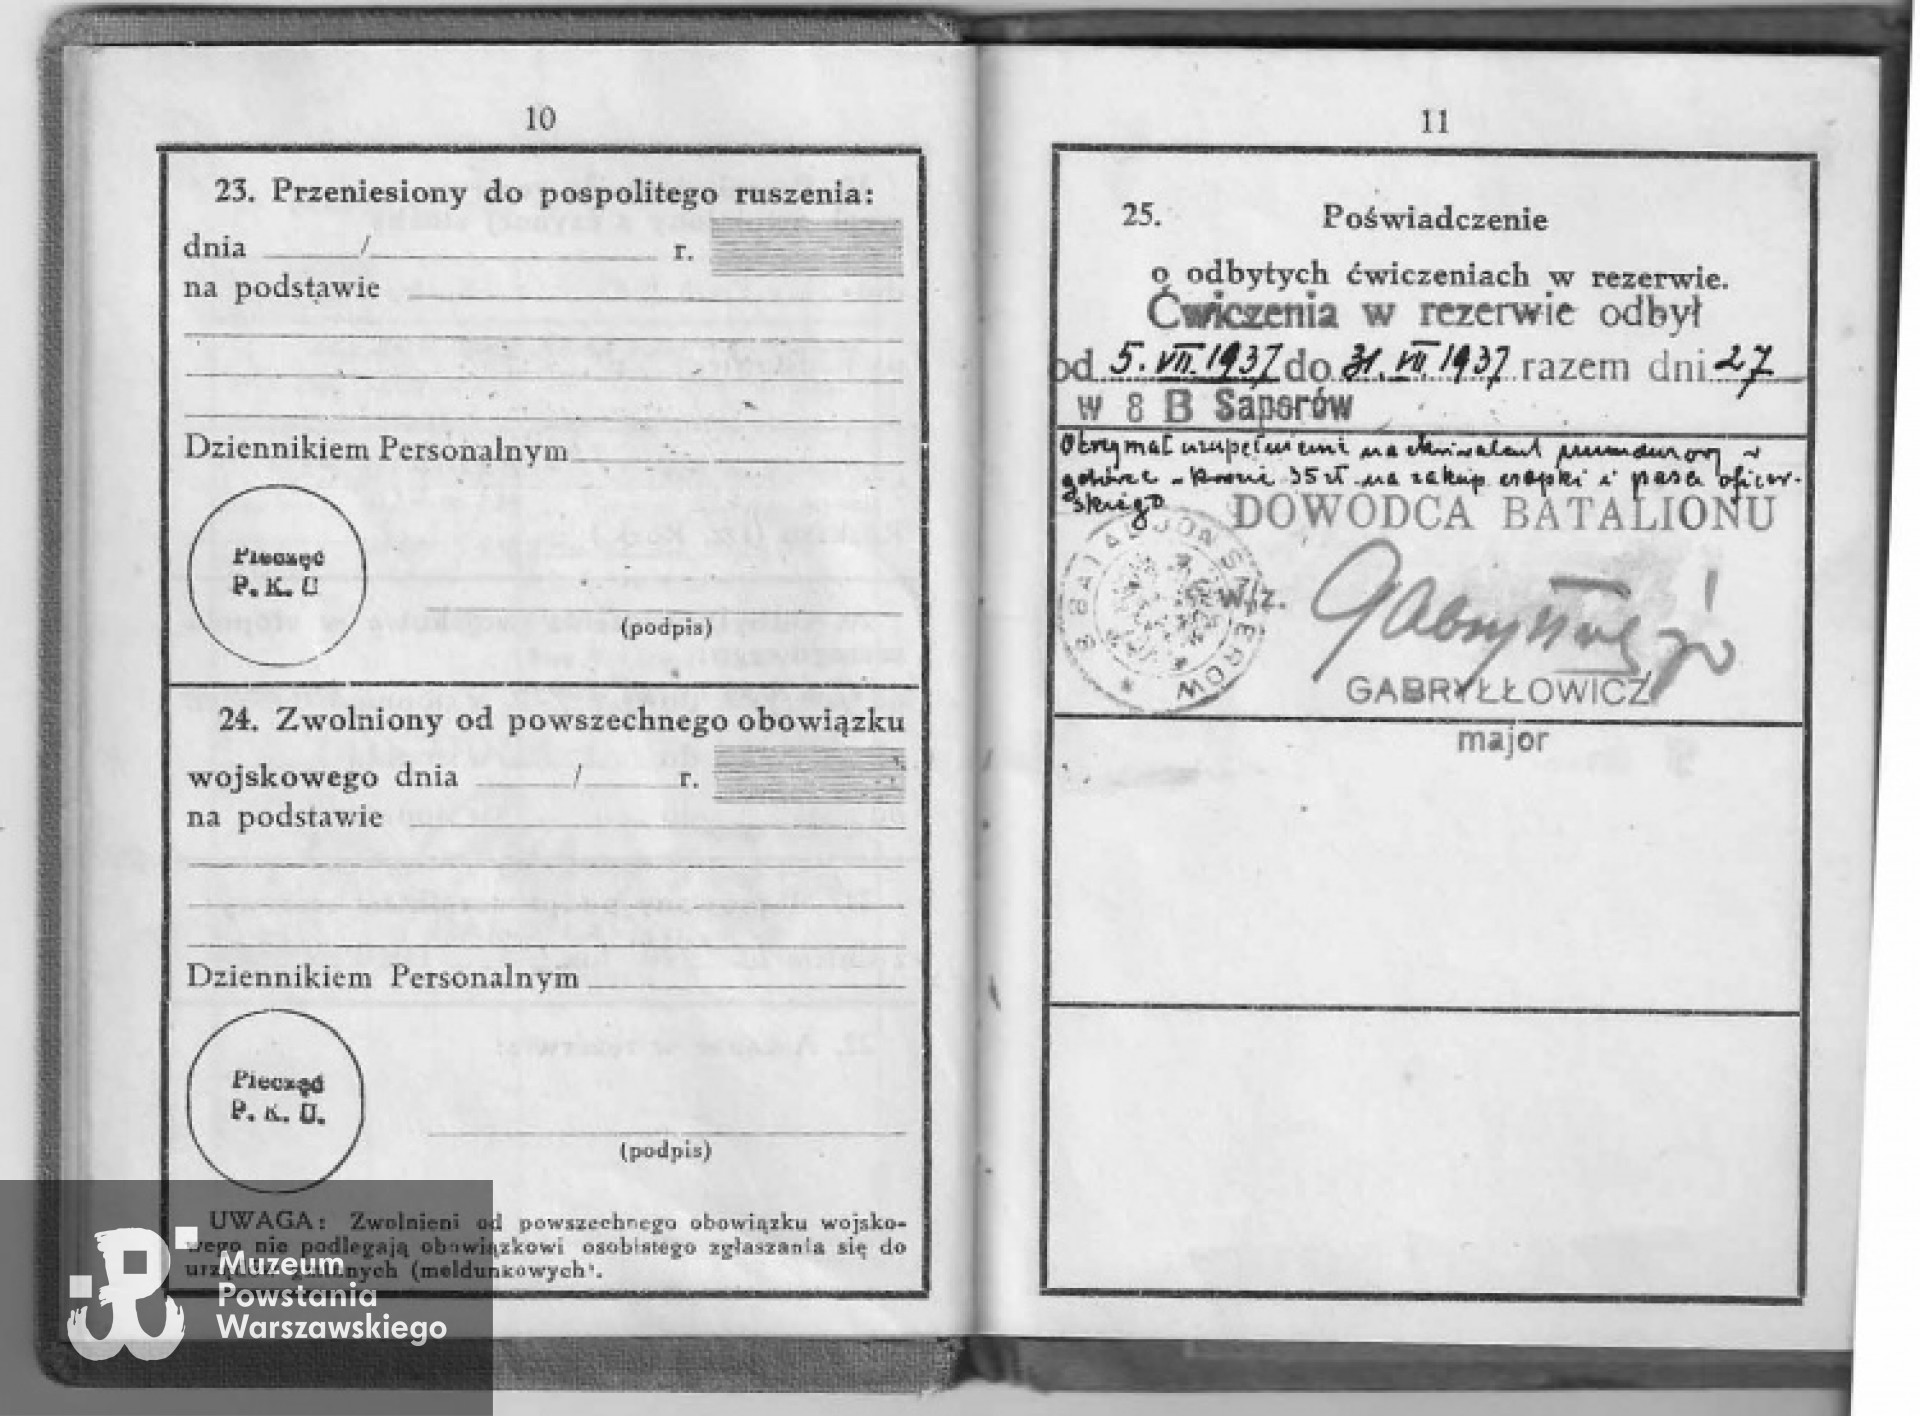 10
23. Przeniesiony do pospolitego ruszenia:
dnia / r.
na podstawie
Dziennikiem Personalnym
Pieczęć
P. K. U
(podpis)
24. Zwolniony od powszechnego obowiązku
wojskowego dnia / r.
na podstawie
Dziennikiem Personalnym
Pieczęć
P. K. U.
(podpis)
UWAGA: Zwolnieni od powszechnego obowiązku wojsko-
wego nie podlegają obowiązkowi osobistego zgłaszania się do
urzędów gminnych (meldunkowych).
Muzeum
Powstania
Warszawskiego
11
25. Poświadczenie
o odbytych ćwiczeniach w rezerwie.
Ćwiczenia w rezerwie odbył
od 5. VII. 1937 do 31. VII. 1937 razem dni 27
w 8 B Saperów
Otrzymał uzupełnienie na ekwiwalent mundurowy w
gotówce w kwocie 35 zł na zakup czapki i pasa oficer-
skiego
DOWÓDCA BATALIONU
8 BATALJON SAPERÓW
w/z.
GABRYŁŁOWICZ
major